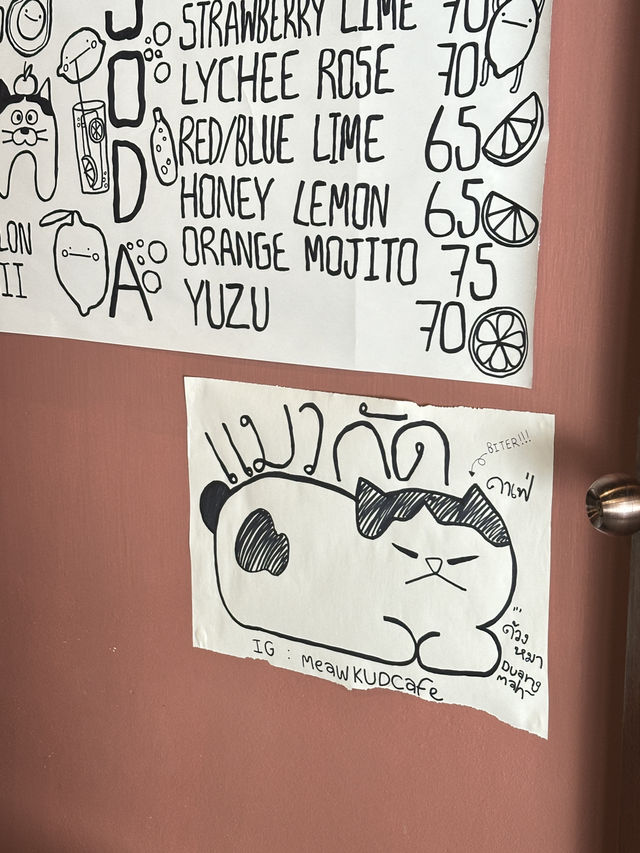 SODA
STRAWBERRY LIME 70
LYCHEE ROSE 70
RED/BLUE LIME 65
HONEY LEMON 65
ORANGE MOJITO 75
YUZU 70
แมวกัด
BITER!!!
คาเฟ่
ด้วง
หมา
Duang
mah~
IG : MeawKUDCafe